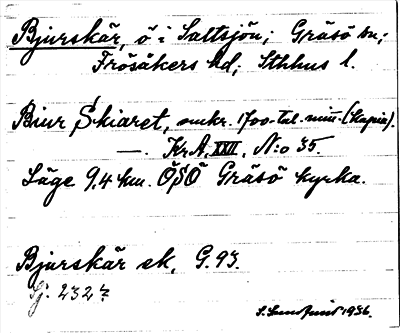 Bjurskär, ö i Saltsjön; Gräsö sn;
Frösåkers hd; Sthlms l.
Biur Skiaret, omkr. 1700-tal. min. (kopia).
—. KrA, XXII, N:o 35.
Läge 9,4 km. ÖSÖ Gräsö kyrka.
Bjurskär ek, G. 93.
Gj. 2327
1936.